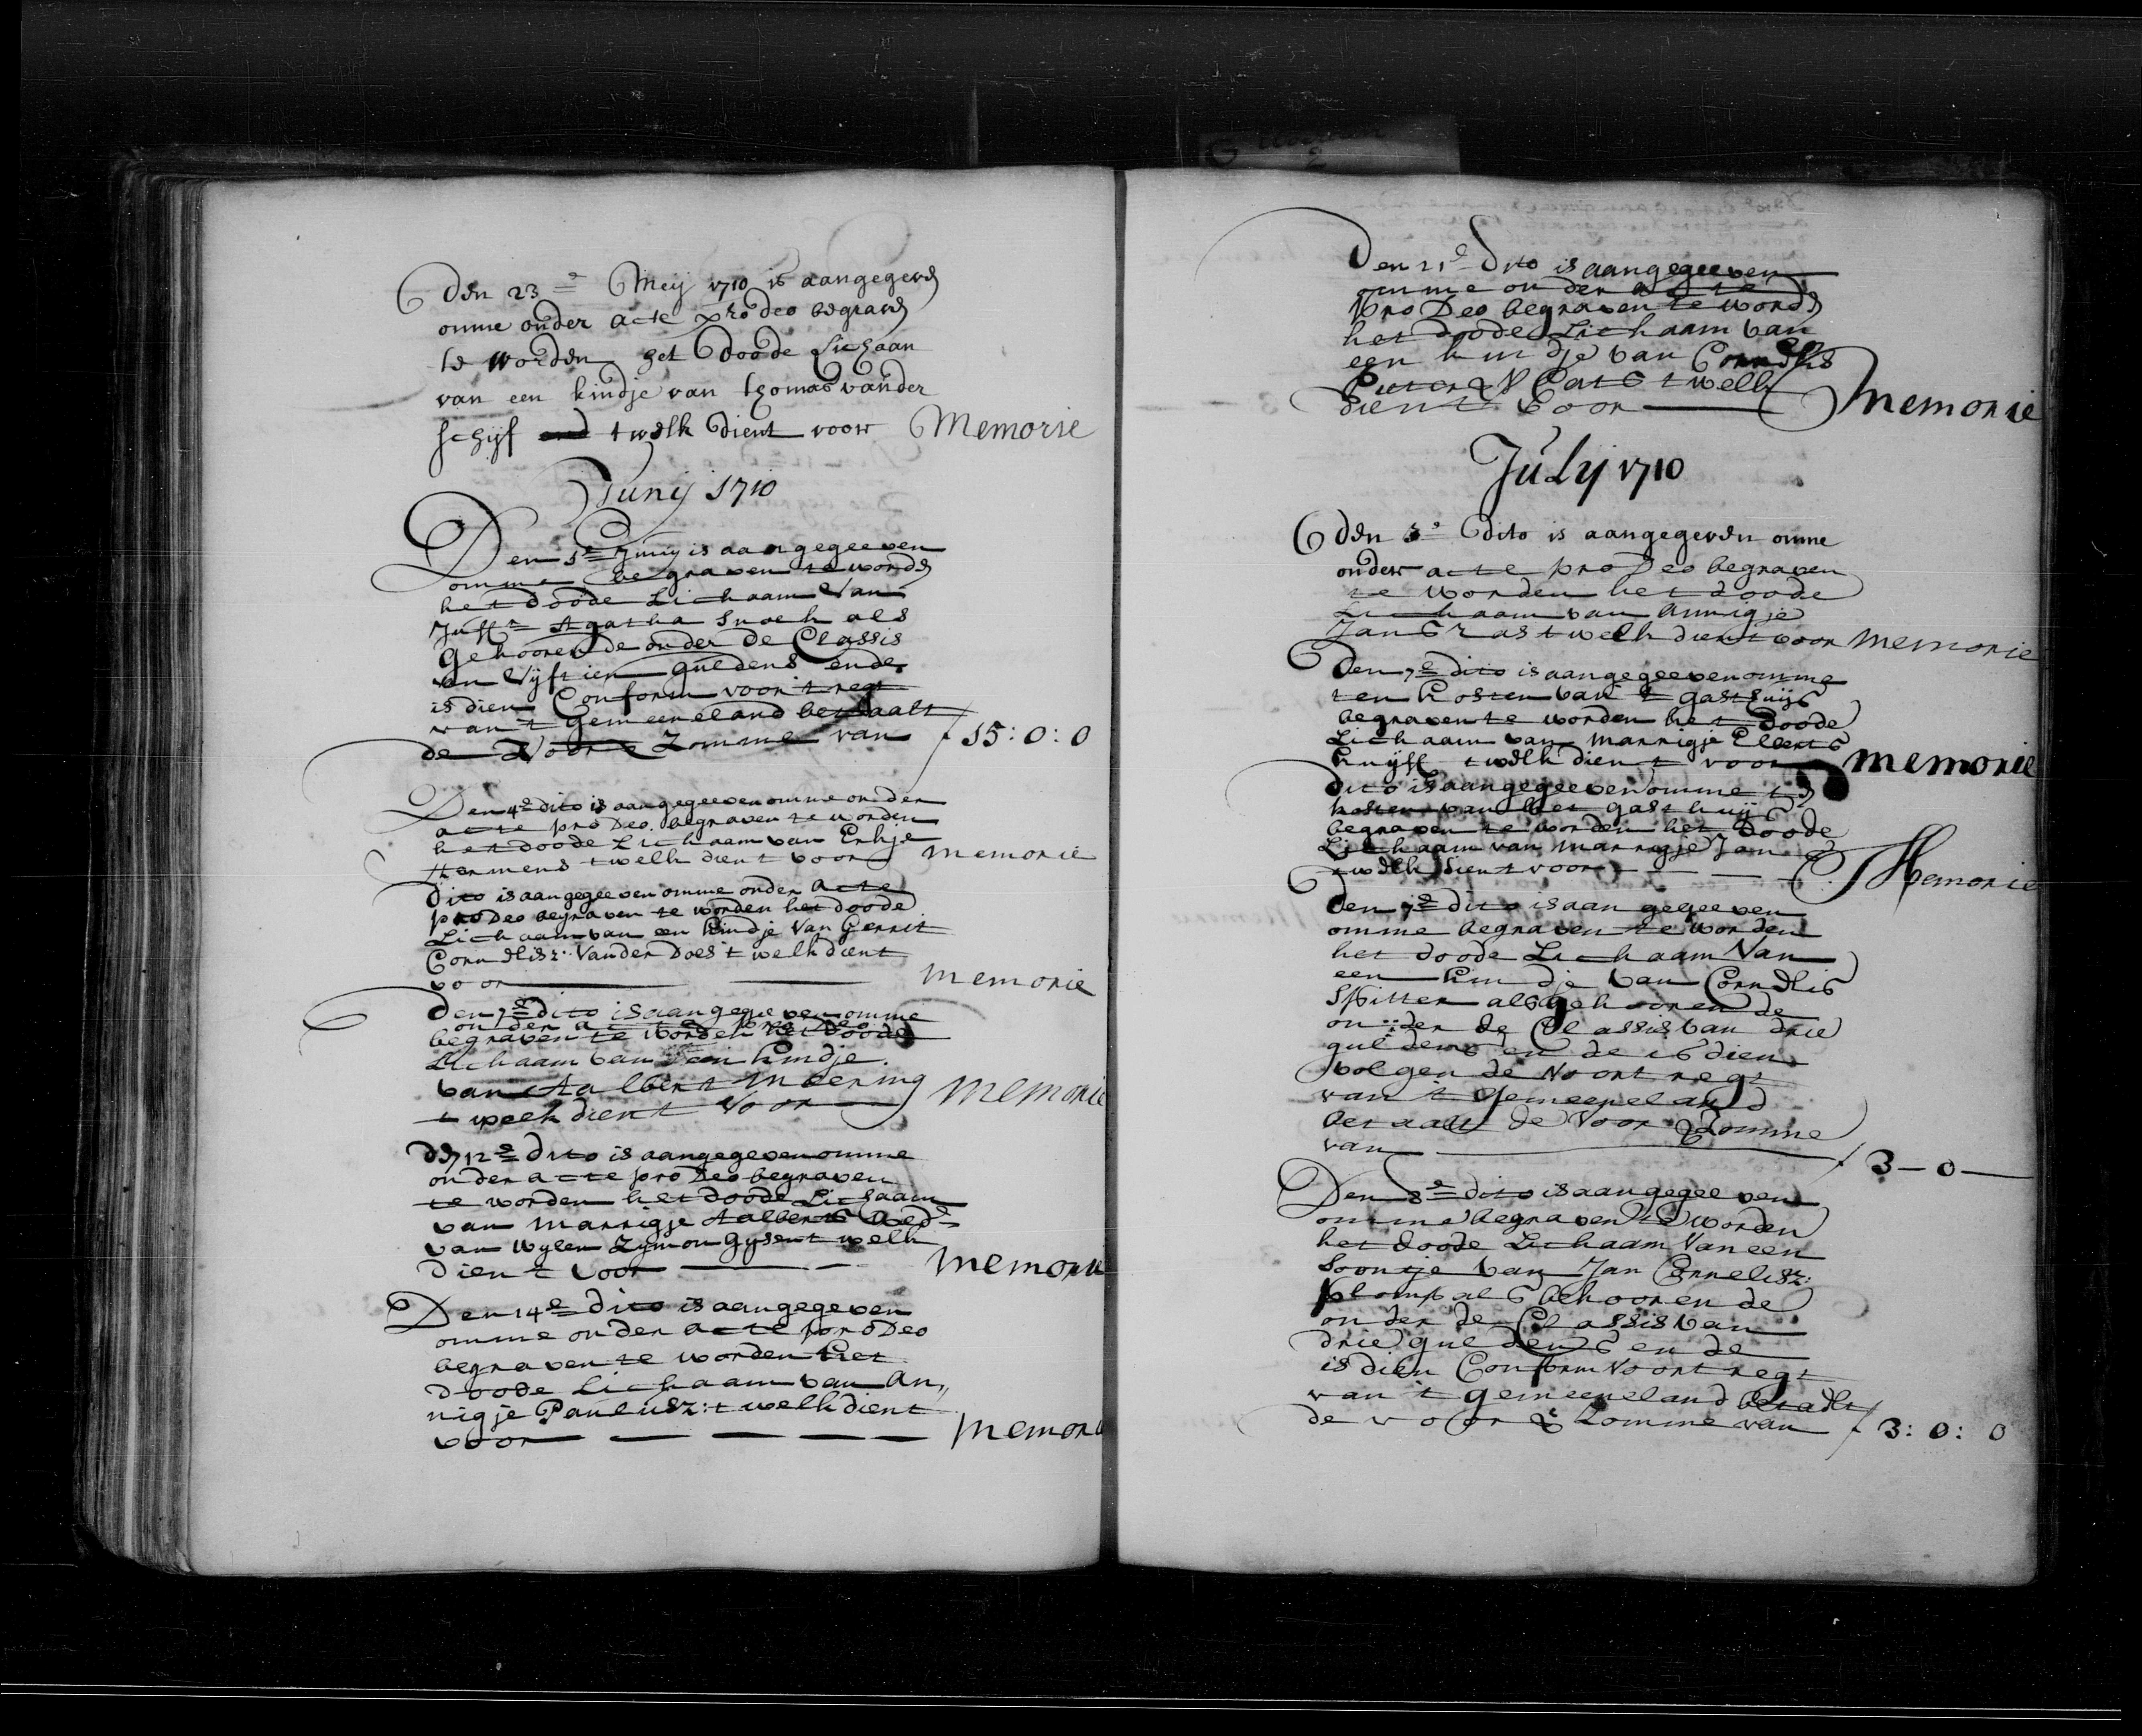 Den 23e Meij 1710 is aangegeven
omme onder acte pro deo begraven
te worden het doode Lichaam
van een kindje van thomas vander
schijf twelk dient voor Memorie
Junij 1710
Den 1e Junij is aangegeeven
omme begraven te worden
het doode Lichaam van
Juffr Agatha Snoek als
gehoorende onder de Classis
van Vijftien guldens ende
is dien Conform voort regt
van 't gemeeneland betaalt
de Voorsz Zomme van f 15:0:0
Den 4e dito is aangegeeven omme onder
acte pro Deo begraven te worden
het doode Lichaam van Erkje
Hermens twelk dient voor memorie
Dito is aangegeeven omme onder acte
pro Deo begraven te worden het doode
Lichaam van een kindje van Gerrit
Cornelisz: Vander Does twelk dient
voor memorie
Den 7e dito is aangegeven omme
onder acte pro Deo
begraven te worden het doode
Lichaam van een kindje
van Aalbert Meering memorie
twelk dient voor
Den 12e dito is aangegeven omme
onder acte pro Deo begraven
te worden het doode Lichaam
van Marrigje Aalberts Wede
van Wylen Zymon Gysen twelk
dient voor memorie
Den 14e dito is aangegeven
omme onder acte pro Deo
begraven te worden het
doode Lichaam van An„
nigje Paulusz: twelk dient
voor memorie
Den 21e Dito is aangegeeven
omme onder acte
pro Deo begraven te worden
het doode Lichaam van
een kindje van Cornelis
Pieter Cats twelk
dient voor Memorie
July 1710
Den 3e dito is aangegeven omme
onder acte pro Deo begraven
te worden het doode
Lichaam van Annigje
Jans twelk dient voor memorie
Den 7e dito is aangegeeven omme
ten kosten van 't gasthuijs
begraven te worden het doode
Lichaam van Marrigje Elberts
twelk dient voor memorie
Dito is aangegeeven omme ten
kosten van het gasthuijs
begraven te worden het doode
Lichaam van Marrigje Jans
twelk dient voor Memorie
Den 7e dito is aangegeeven
omme begraven te worden
het doode Lichaam Van
een kindje van Cornelis
Spitter als gehoorende
onder de Classis van drie
guldens ende is dien
volgende Voort regt
van 't gemeeneland
betaalt de Voorsz Zomme
van f 3-0-
Den 8e dito is aangegeeven
omme begraven te worden
het doode Lichaam Van een
Soontje van Jan Cornelisz:
plomp als behoorende
onder de Classis van
drie guldens ende
is dien Conform Voort regt
van 't gemeeneland betaalt
de voorsz Zomme van f 3:0:0